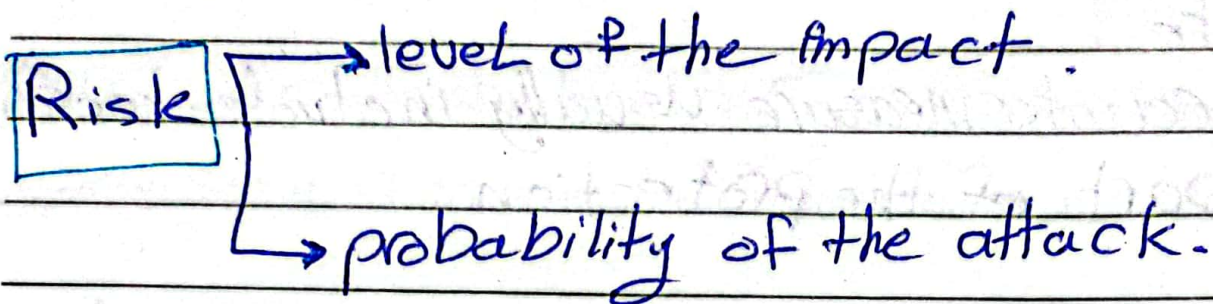 level of the impact.
Risk
probability of the attack.